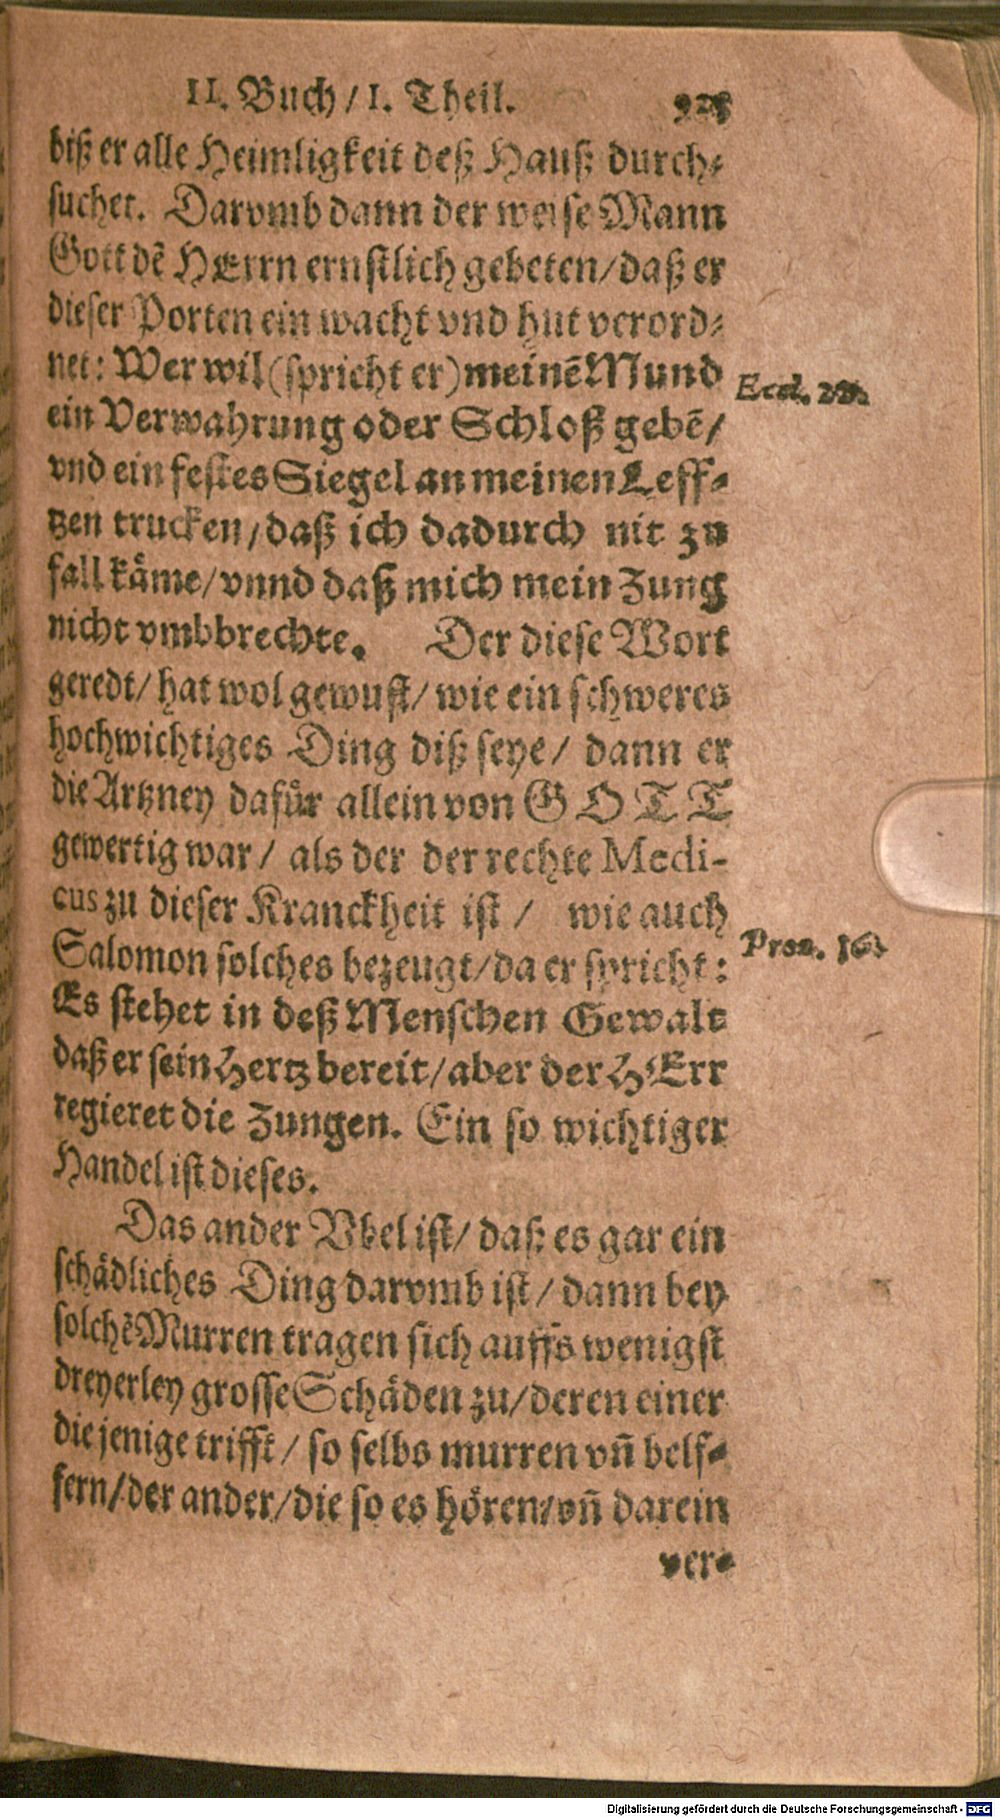 II. Buch / I. Theil.
biß er alle Heimligkeit deß Hauß durch-
suchet. Darvmb dann der weise Mann
Gott dẽ HErrn ernstlich gebeten / daß er
dieser Porten ein wacht vnd hut verord-
net: Wer wil (spricht er) meinẽ Mund
Eccl.
ein Verwahrung oder Schloß gebẽ /
vnd ein festes Siegel an meinen Leff-
tzen trucken / daß ich dadurch nit zu
fall käme / vnnd daß mich mein Zung
nicht vmbbrechte. Der diese Wort
geredt / hat wol gewust / wie ein schweres
hochwichtiges Ding diß seye / dann er
die Artzney dafür allein von GOTT
gewertig war / als der der rechte Medi-
cus zu dieser Kranckheit ist / wie auch
Salomon solches bezeugt / da er spricht:
Prou. 16.
Es stehet in deß Menschen Gewalt
daß er sein Hertz bereit / aber der HErr
regieret die Zungen. Ein so wichtiger
Handel ist dieses.
Das ander Vbel ist / daß es gar ein
schädliches Ding darvmb ist / dann bey
solchẽ Murren tragen sich auffs wenigst
dreyerley grosse Schäden zu / deren einer
die jenige trifft / so selbs murren vñ belf-
fern / der ander / die so es hören / vñ darein
ver-
Digitalisierung gefördert durch die Deutsche Forschungsgemeinschaft - DFG